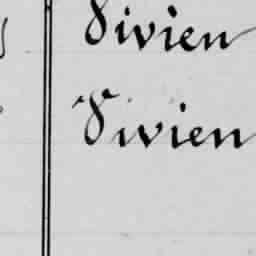 Vivien
Vivien